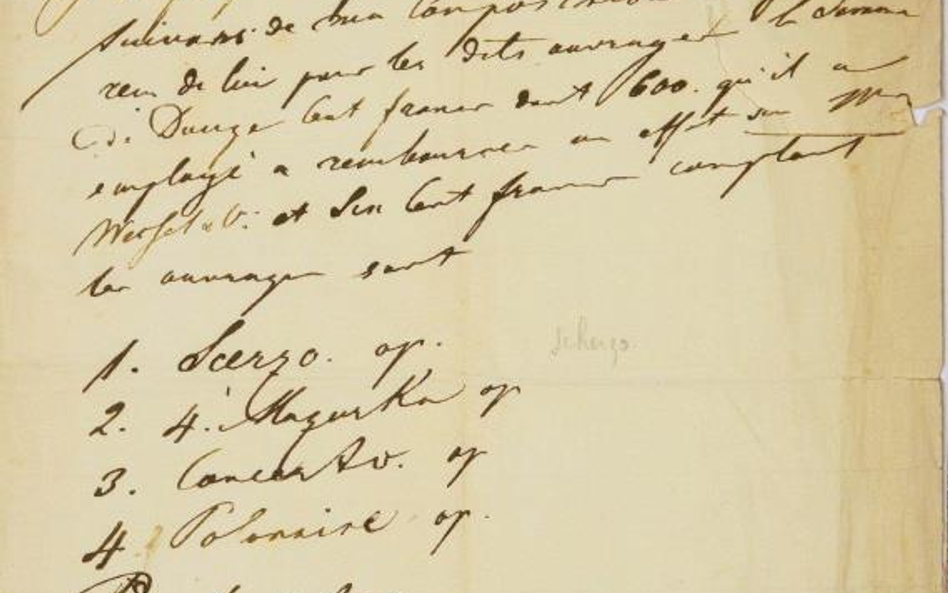 suivans de ma Composition
recu de lui pour les dits ouvrages la Somme
de Douze Cent francs dont 600. qu'il a
employé a rembourser un effet sur Mrs
Wessel & C: et Six Cent francs comptant
les ouvrages sont
1. Scerzo. op.
scherzo
2. 4. Mazurka op
3. Concerto. op
4 Polonaise op.